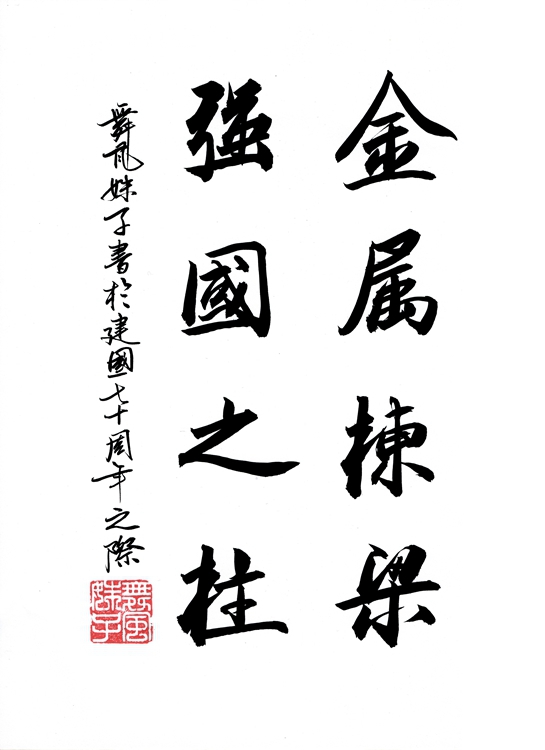 金属棟梁
强國之柱
舞風姝子書於建國七十周年之際
舞風
姝子